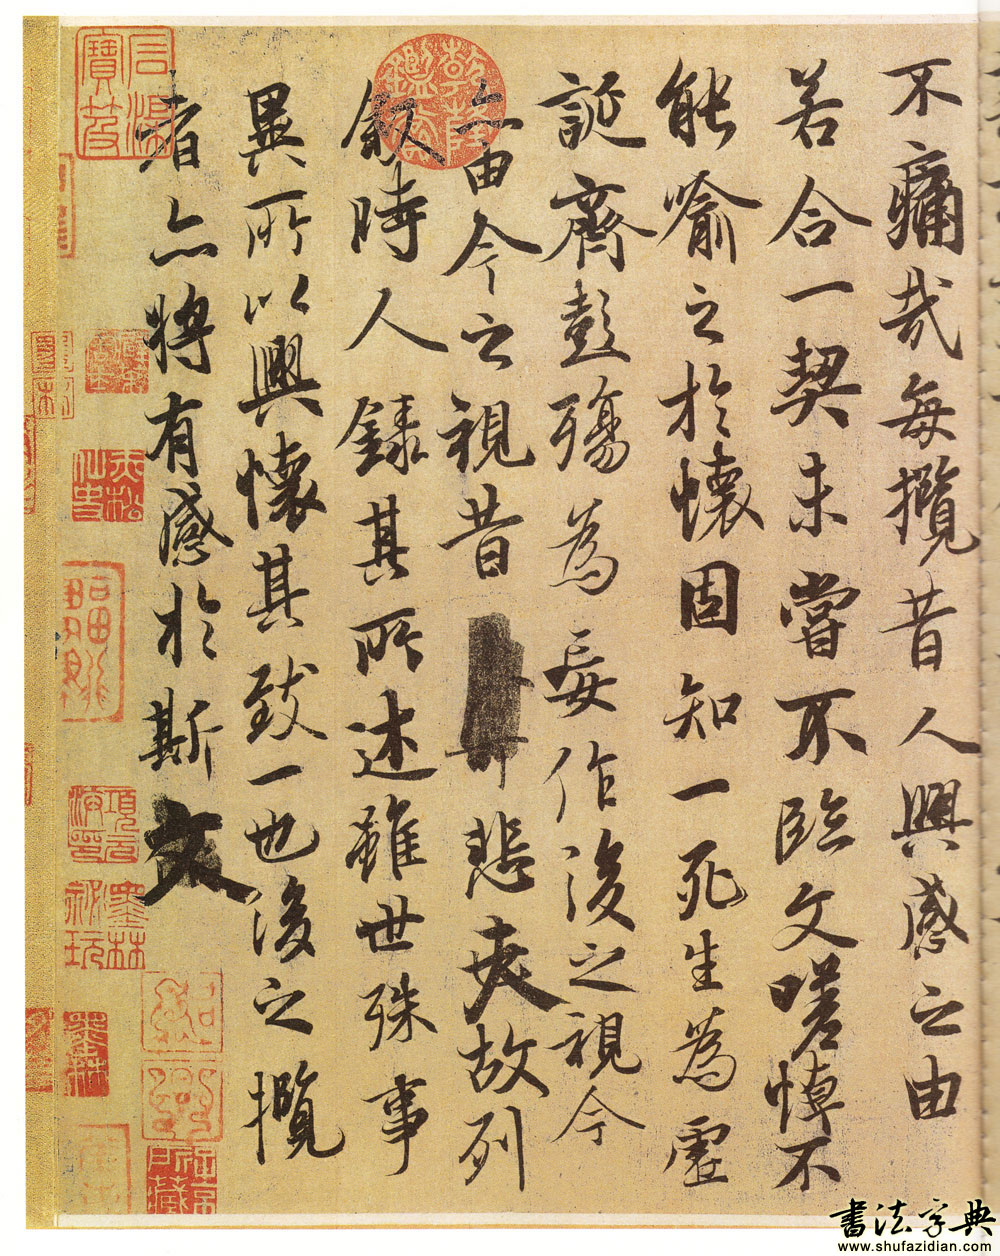 不痛哉每攬昔人興感之由
若合一契未嘗不臨文嗟悼不
能喻之於懷固知一死生為虛
誕齊彭殤為妄作後之視今
亦由今之視昔悲夫故列
敘時人錄其所述雖世殊事
異所以興懷其致一也後之攬
者亦將有感於斯文
書法字典
www.shufazidian.com